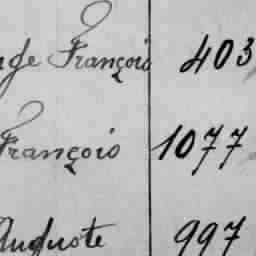 François 403
François 1077
Auguste 997